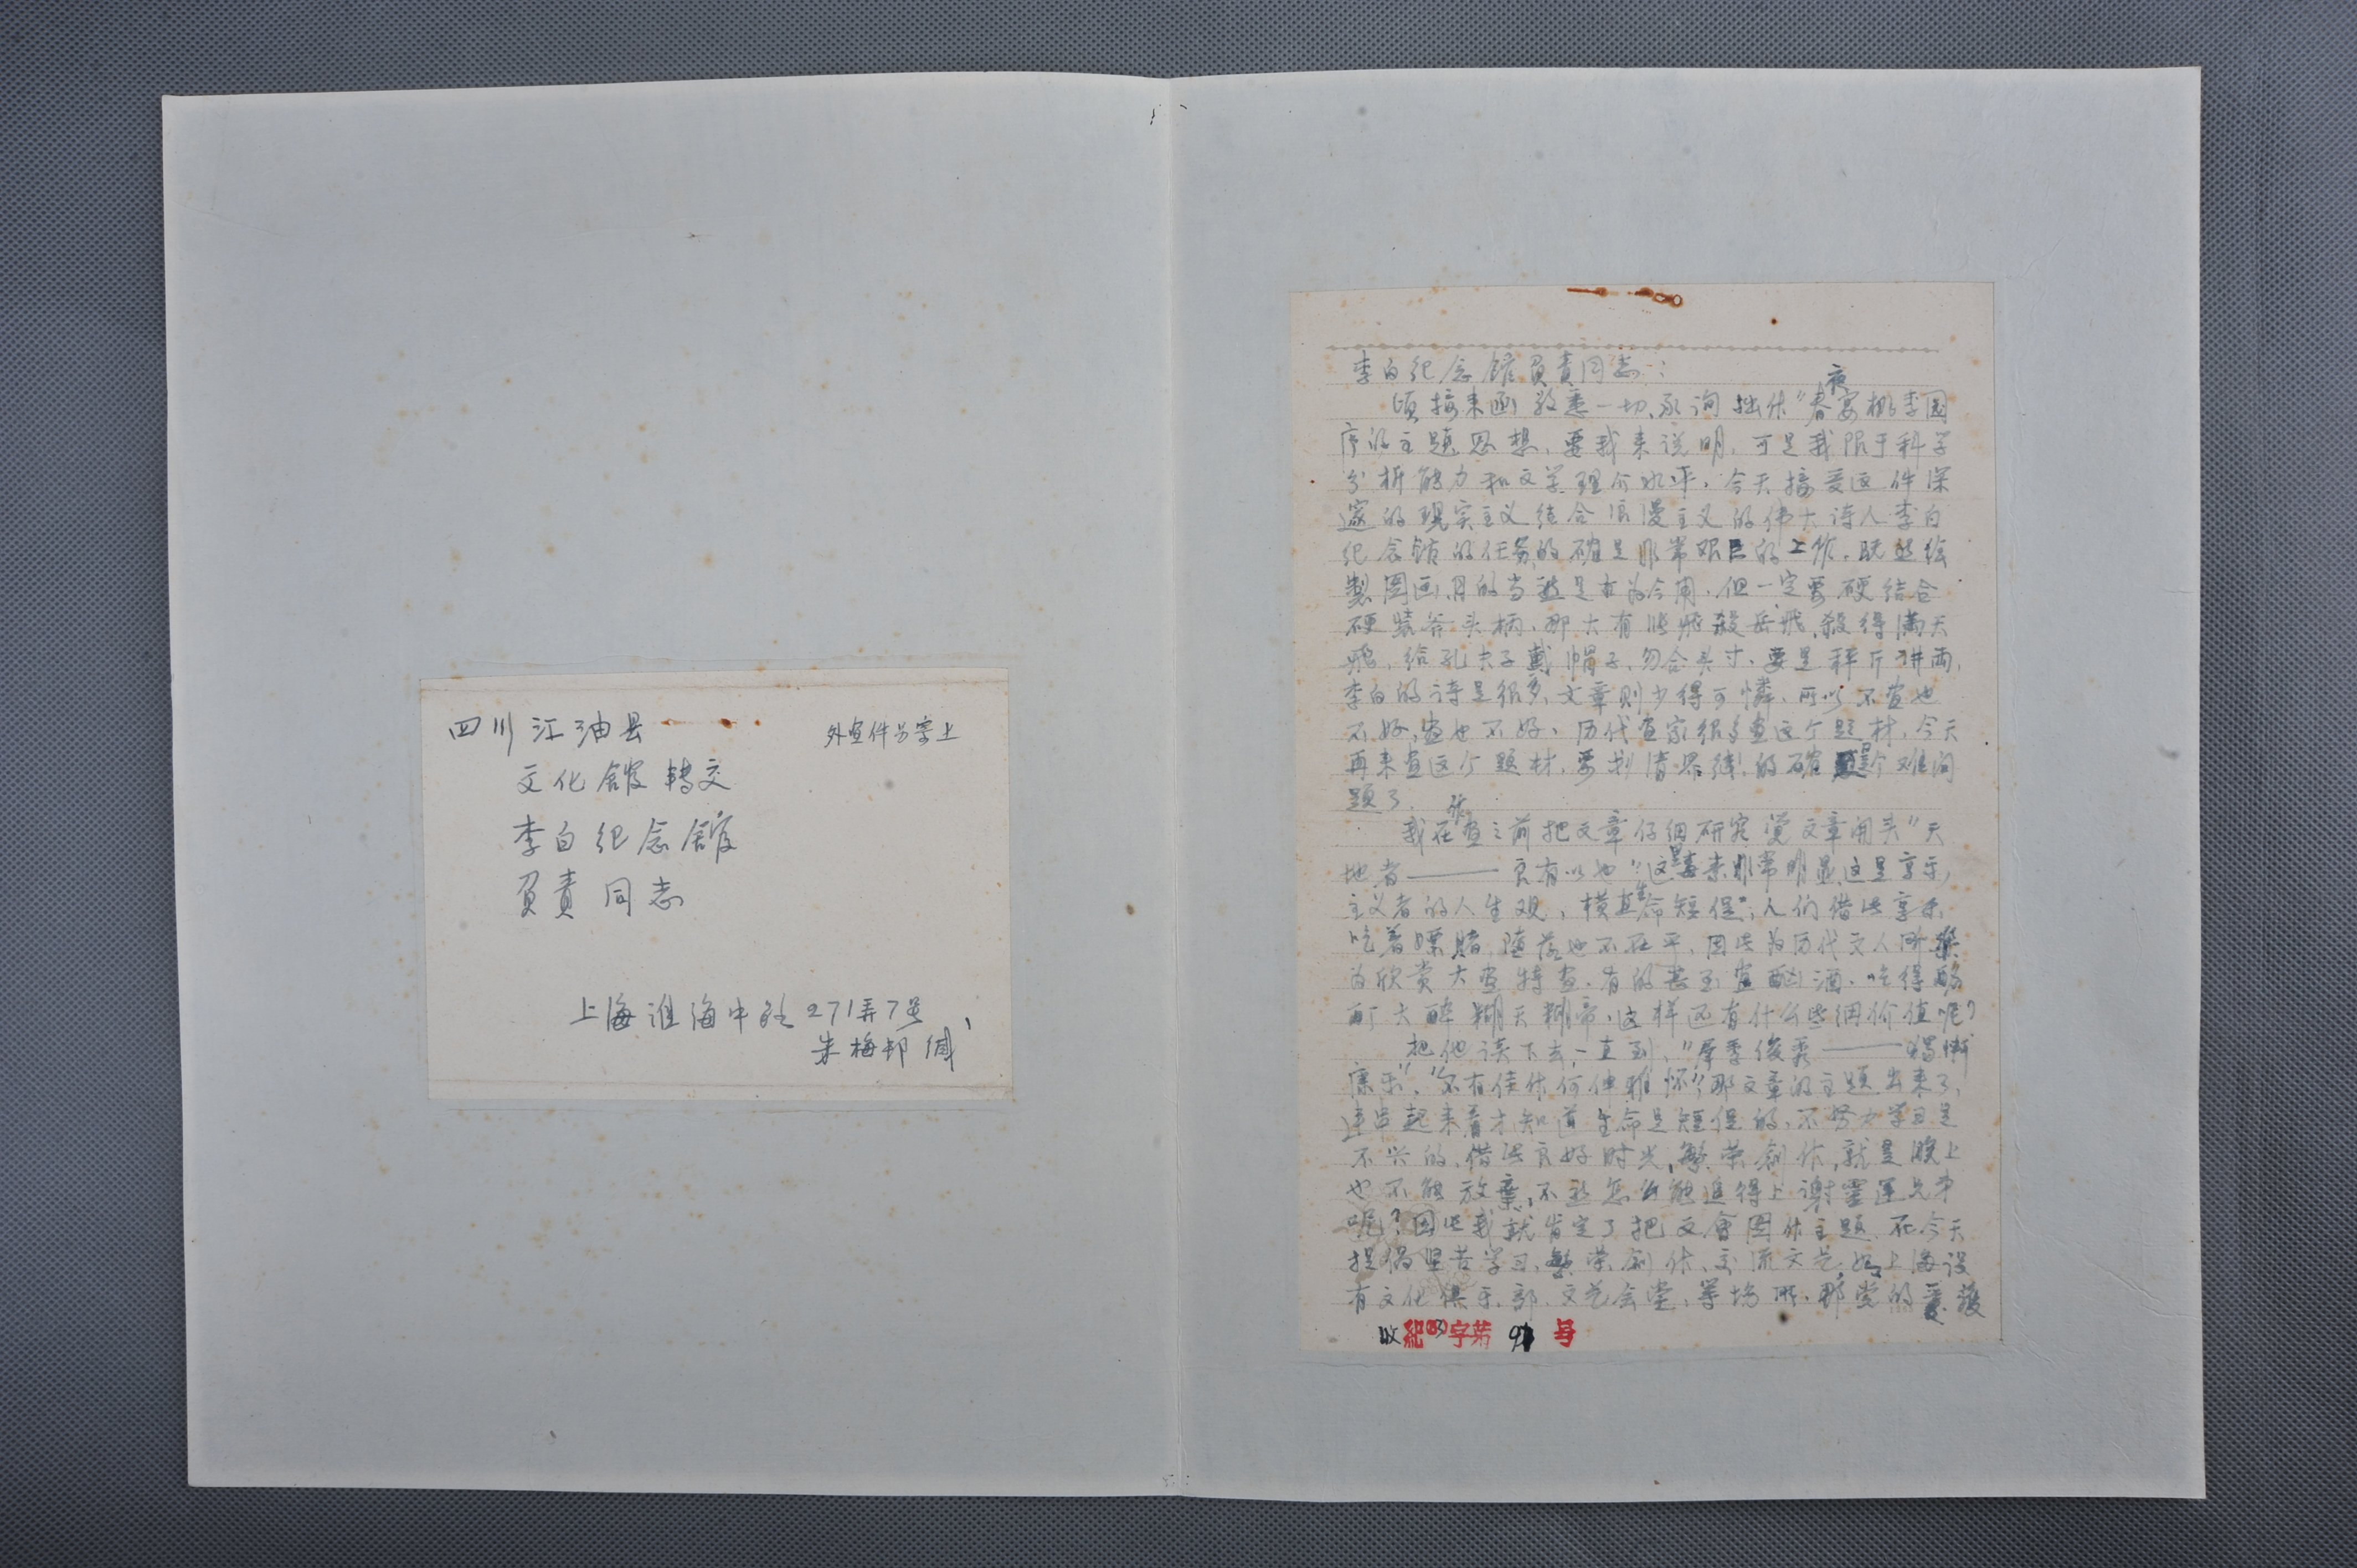 四川江油县
外画件另寄上
文化馆转交
李白纪念馆
負責同志
上海淮海中路271弄7号
朱梅邨缄
李白纪念馆負責同志：
頃接来函敬悉一切、承询拙作"春夜宴桃李园
序的主題思想，要我来说明，可是我限于科学
分析能力和文学理介水平，今天接受这件深
邃的现实主义结合浪漫主义的伟大诗人李白
纪念馆的任务的确是非常艰巨的工作，既然绘
製图画，目的当然是古为今用，但一定要硬结合
硬装斧头柄，那大有张飛殺岳飛，殺得满天
飛，给孔夫子戴帽子，勿合头寸，要是秤斤拼兩，
李白的诗是很多，文章则少得可憐，所以不画也
不好，画也不好，历代画家很多画这个题材，今天
再来画这个题材，要划清界线，的确是个难问
題了．
我在作画之前把文章仔细研究覚文章開头"天
地者——良有以也"这是看来非常明显，这是享乐
主义者的人生观，横直"生命短促"，人们借此享乐，
吃着嫖赌，墮落也不在乎，因此为历代文人所樂
为欣赏大画特画，有的甚至画酗酒，吃得酩
酊大醉糊天糊帝，这样还有什么些细价值呢？
把他读下去，一直到，"羣季俊秀——獨慚
康乐"，"不有佳作何伸雅怀"，那文章的主题出来了，
连串起来看才知道生命是短促的，不努力学习是
不兴的，借此良好时光，繁荣创作，就是晚上
也不能放棄，不然怎么能追得上谢靈運兄弟
呢？因此我就肯定了把文會图作主題 在今天
提倡坚苦学习，繁荣创作，交流文艺，如上海设
有文化俱乐部，文艺会堂，等场所，那党的爱護
收紀(63)字第 91 号